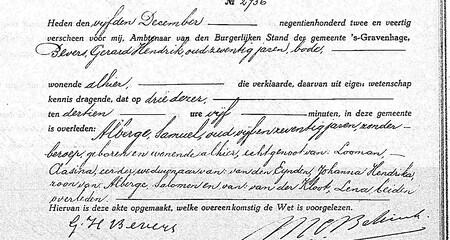 № 2736
Heden den vijfden December negentienhonderd twee en veertig
verscheen voor mij, Ambtenaar van den Burgerlijken Stand des gemeente 's-Gravenhage,
Bevers, Gerard Hendrik, oud zeventig jaren, bode,
wonende alhier, die verklaarde, daarvan uit eigen wetenschap
kennis dragende, dat op drie dezer,
ten dertien ure vijf minuten, in deze gemeente
is overleden: Alberge, Samuel, oud vijf en zeventig jaren, zonder
beroep, geboren en wonende alhier, echtgenoot van Looman,
Clasina, eerder weduwnaar van van den Eynden, Johanna Hendrika,
zoon van Alberge, Salomon en van van der Kloot, Lena beiden
overleden.
Hiervan is deze akte opgemaakt, welke overeenkomstig de Wet is voorgelezen.
G. H. Bevers